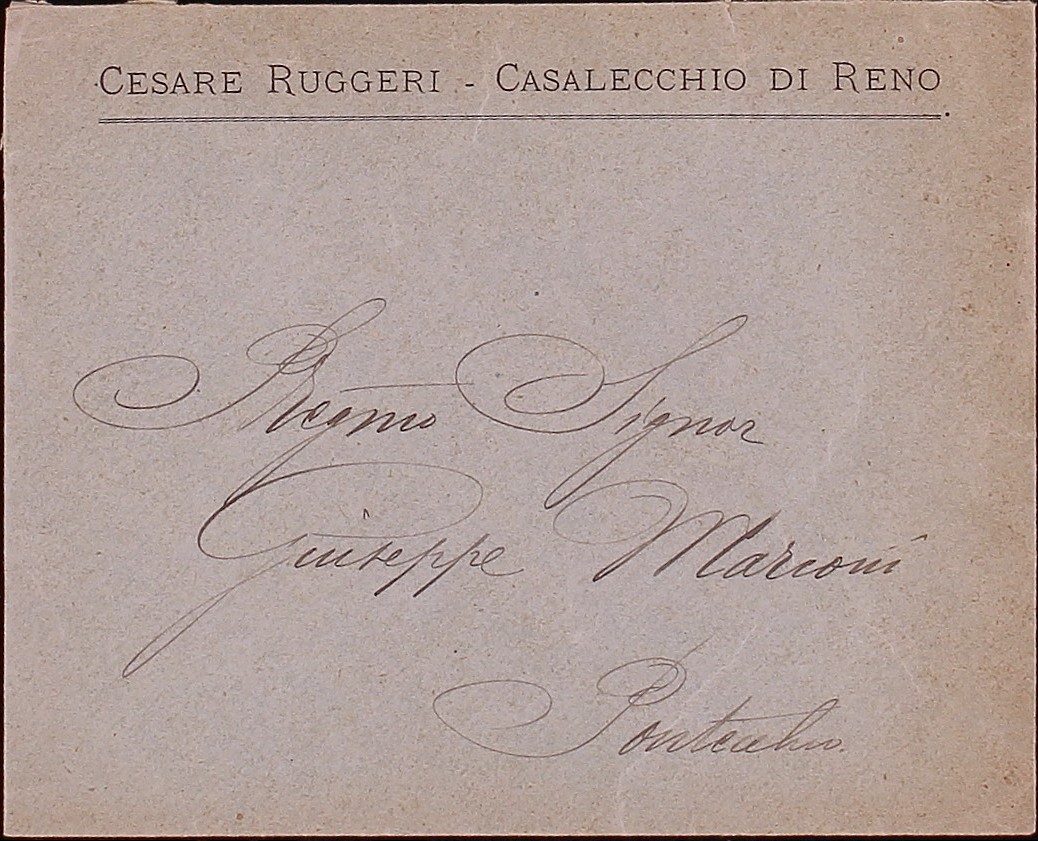 CESARE RUGGERI - CASALECCHIO DI RENO
Pregmo Signor
Giuseppe Marconi
Pontecchio.